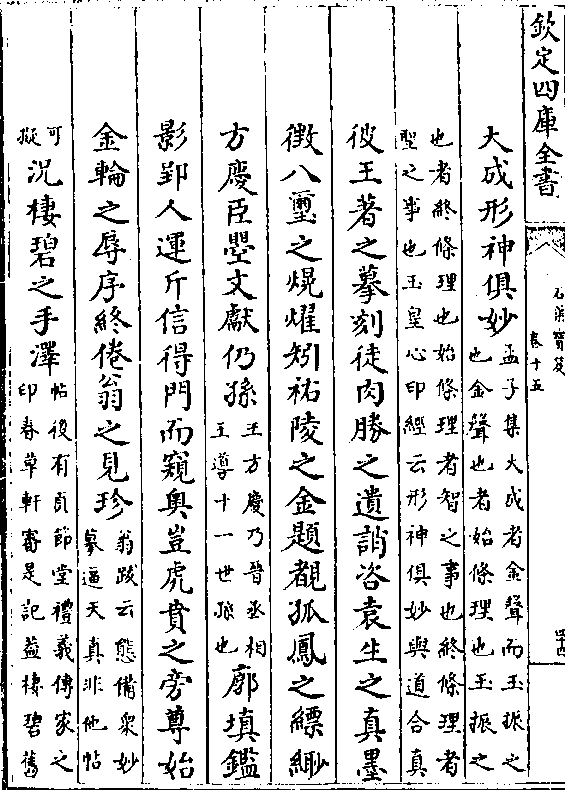 欽定四庫全書
石渠寶笈
卷十五
大成形神俱妙孟子集大成者金聲而玉振之
也金聲也者始條理也玉振之
也者終條理也始條理者智之事也終條理者
聖之事也玉皇心印經云形神俱妙與道合真
彼王著之摹刻徒肉勝之遺誚咨袁生之真墨
徴八璽之熀燿矧祐陵之金題覩孤鳳之縹緲
方慶臣曌文獻仍孫王方慶乃晉丞相
王導十一世孫也廓填鑑
影郢人運斤信得門而窺奥豈虎賁之旁尊始
金輪之辱序終倦翁之見珍翁跋云態備衆妙
摹逼天真非他帖
可
擬況棲碧之手澤帖後有貞節堂禮義傳家之
印春草軒審定記益棲碧舊